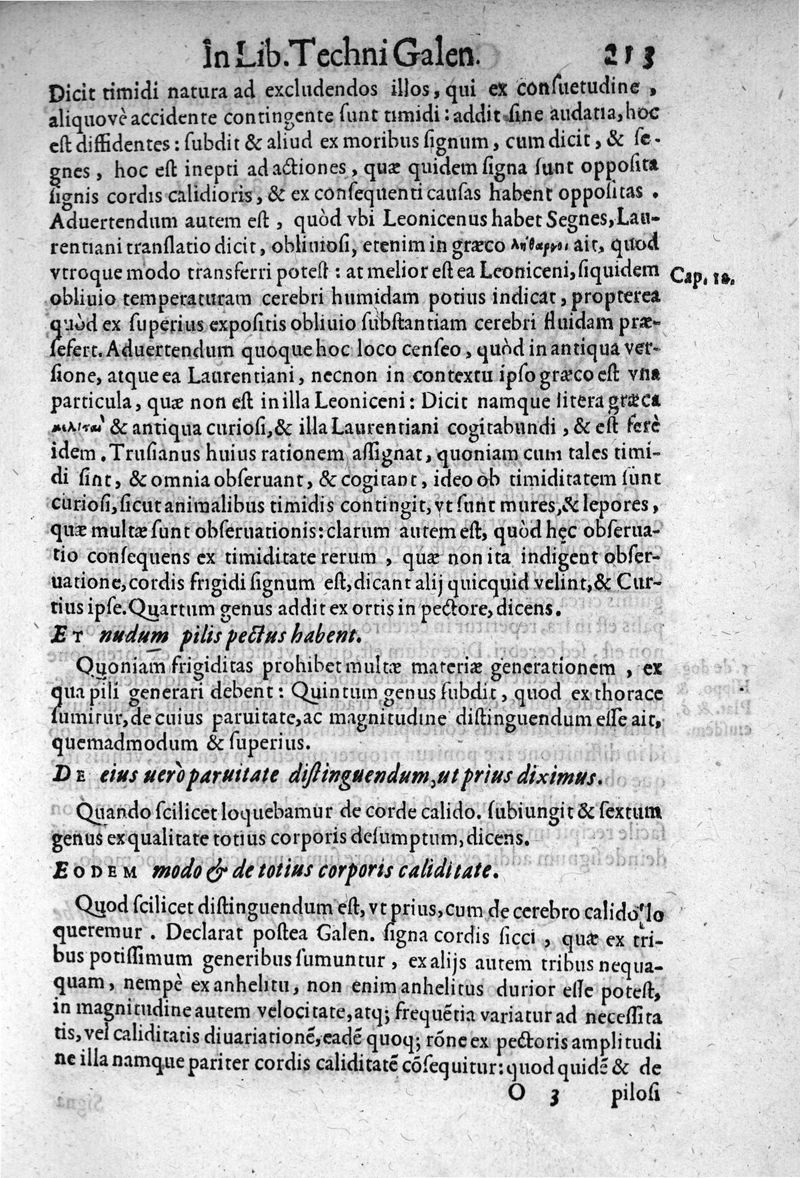 In Lib. Techni Galen. 213
Dicit timidi natura ad excludendos illos, qui ex conſuetudine,
aliquovè accidente contingente ſunt timidi: addit ſine audatia, hoc
eſt diffidentes: ſubdit & aliud ex moribus ſignum, cum dicit, & ſe-
gnes, hoc eſt inepti ad actiones, quæ quidem ſigna ſunt oppoſita
ſignis cordis calidioris, & ex conſequenti cauſas habent oppoſitas.
Aduertendum autem eſt, quòd vbi Leonicenus habet Segnes, Lau-
rentiani tranſlatio dicit, obliuioſi, etenim in græco ait, quod
vtroque modo transferri poteſt: at melior eſt ea Leoniceni, ſiquidem
Cap. 12.
obliuio temperaturam cerebri humidam potius indicat, propterea
quòd ex ſuperius expoſitis obliuio ſubſtantiam cerebri fluidam præ-
ſefert. Aduertendum quoque hoc loco cenſeo, quòd in antiqua ver-
ſione, atque ea Laurentiani, necnon in contextu ipſo græco eſt vna
particula, quæ non eſt in illa Leoniceni: Dicit namque litera græca
& antiqua curioſi, & illa Laurentiani cogitabundi, & eſt ferè
idem. Truſianus huius rationem aſſignat, quoniam cum tales timi-
di ſint, & omnia obſeruant, & cogitant, ideo ob timiditatem ſunt
curioſi, ſicut animalibus timidis contingit, vt ſunt mures, & lepores,
quæ multæ ſunt obſeruationis: clarum autem eſt, quòd hęc obſerua-
tio conſequens ex timiditate rerum, quæ non ita indigent obſer-
uatione, cordis frigidi ſignum eſt, dicant alij quicquid velint, & Cur-
tius ipſe. Quartum genus addit ex ortis in pectore, dicens.
ET nudum pilis pectus habent.
Quoniam frigiditas prohibet multæ materiæ generationem, ex
qua pili generari debent: Quintum genus ſubdit, quod ex thorace
ſumitur, de cuius paruitate, ac magnitudine diſtinguendum eſſe ait,
quemadmodum & ſuperius.
DE eius uerò paruitate diſtinguendum, ut prius diximus.
Quando ſcilicet loquebamur de corde calido. ſubiungit & ſextum
genus ex qualitate totius corporis deſumptum, dicens.
EODEM modo & de totius corporis caliditate.
Quod ſcilicet diſtinguendum eſt, vt prius, cum de cerebro calido lo
queremur. Declarat poſtea Galen. ſigna cordis ſicci, quæ ex tri-
bus potiſſimum generibus ſumuntur, ex alijs autem tribus nequa-
quam, nempè ex anhelitu, non enim anhelitus durior eſſe poteſt,
in magnitudine autem velocitate, atq; frequẽtia variatur ad neceſſita
tis, vel caliditatis diuariationẽ, eadẽ quoq; rōne ex pectoris amplitudi
ne illa namque pariter cordis caliditatẽ cõſequitur: quod quidẽ & de
O 3 piloſi